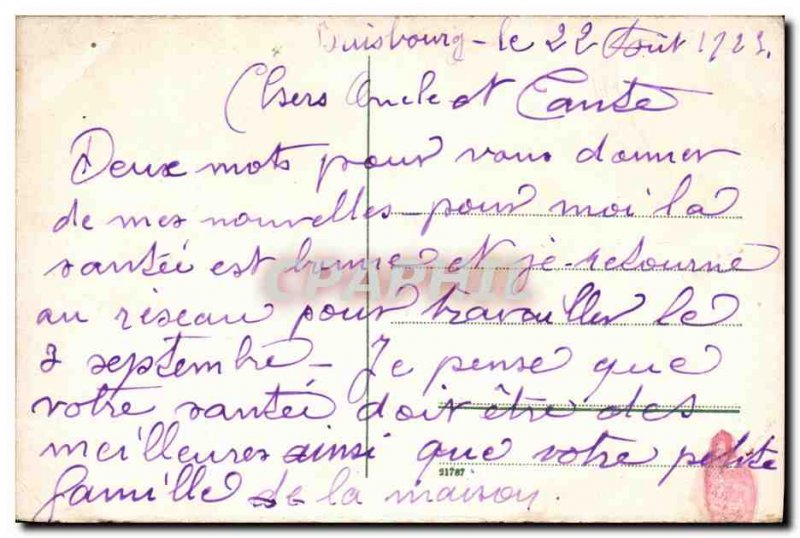 Duisbourg - le 22 Août 1923.
Chers Oncle et Tante
Deux mots pour vous donner
de mes nouvelles pour moi la
santéi est bonne et je retourne
au réseau pour travailler le
3 septembre - Je pense que
votre santéi doit être des
meilleures ainsi que votre petite
famille de la maison.
21787
CPAPHIL